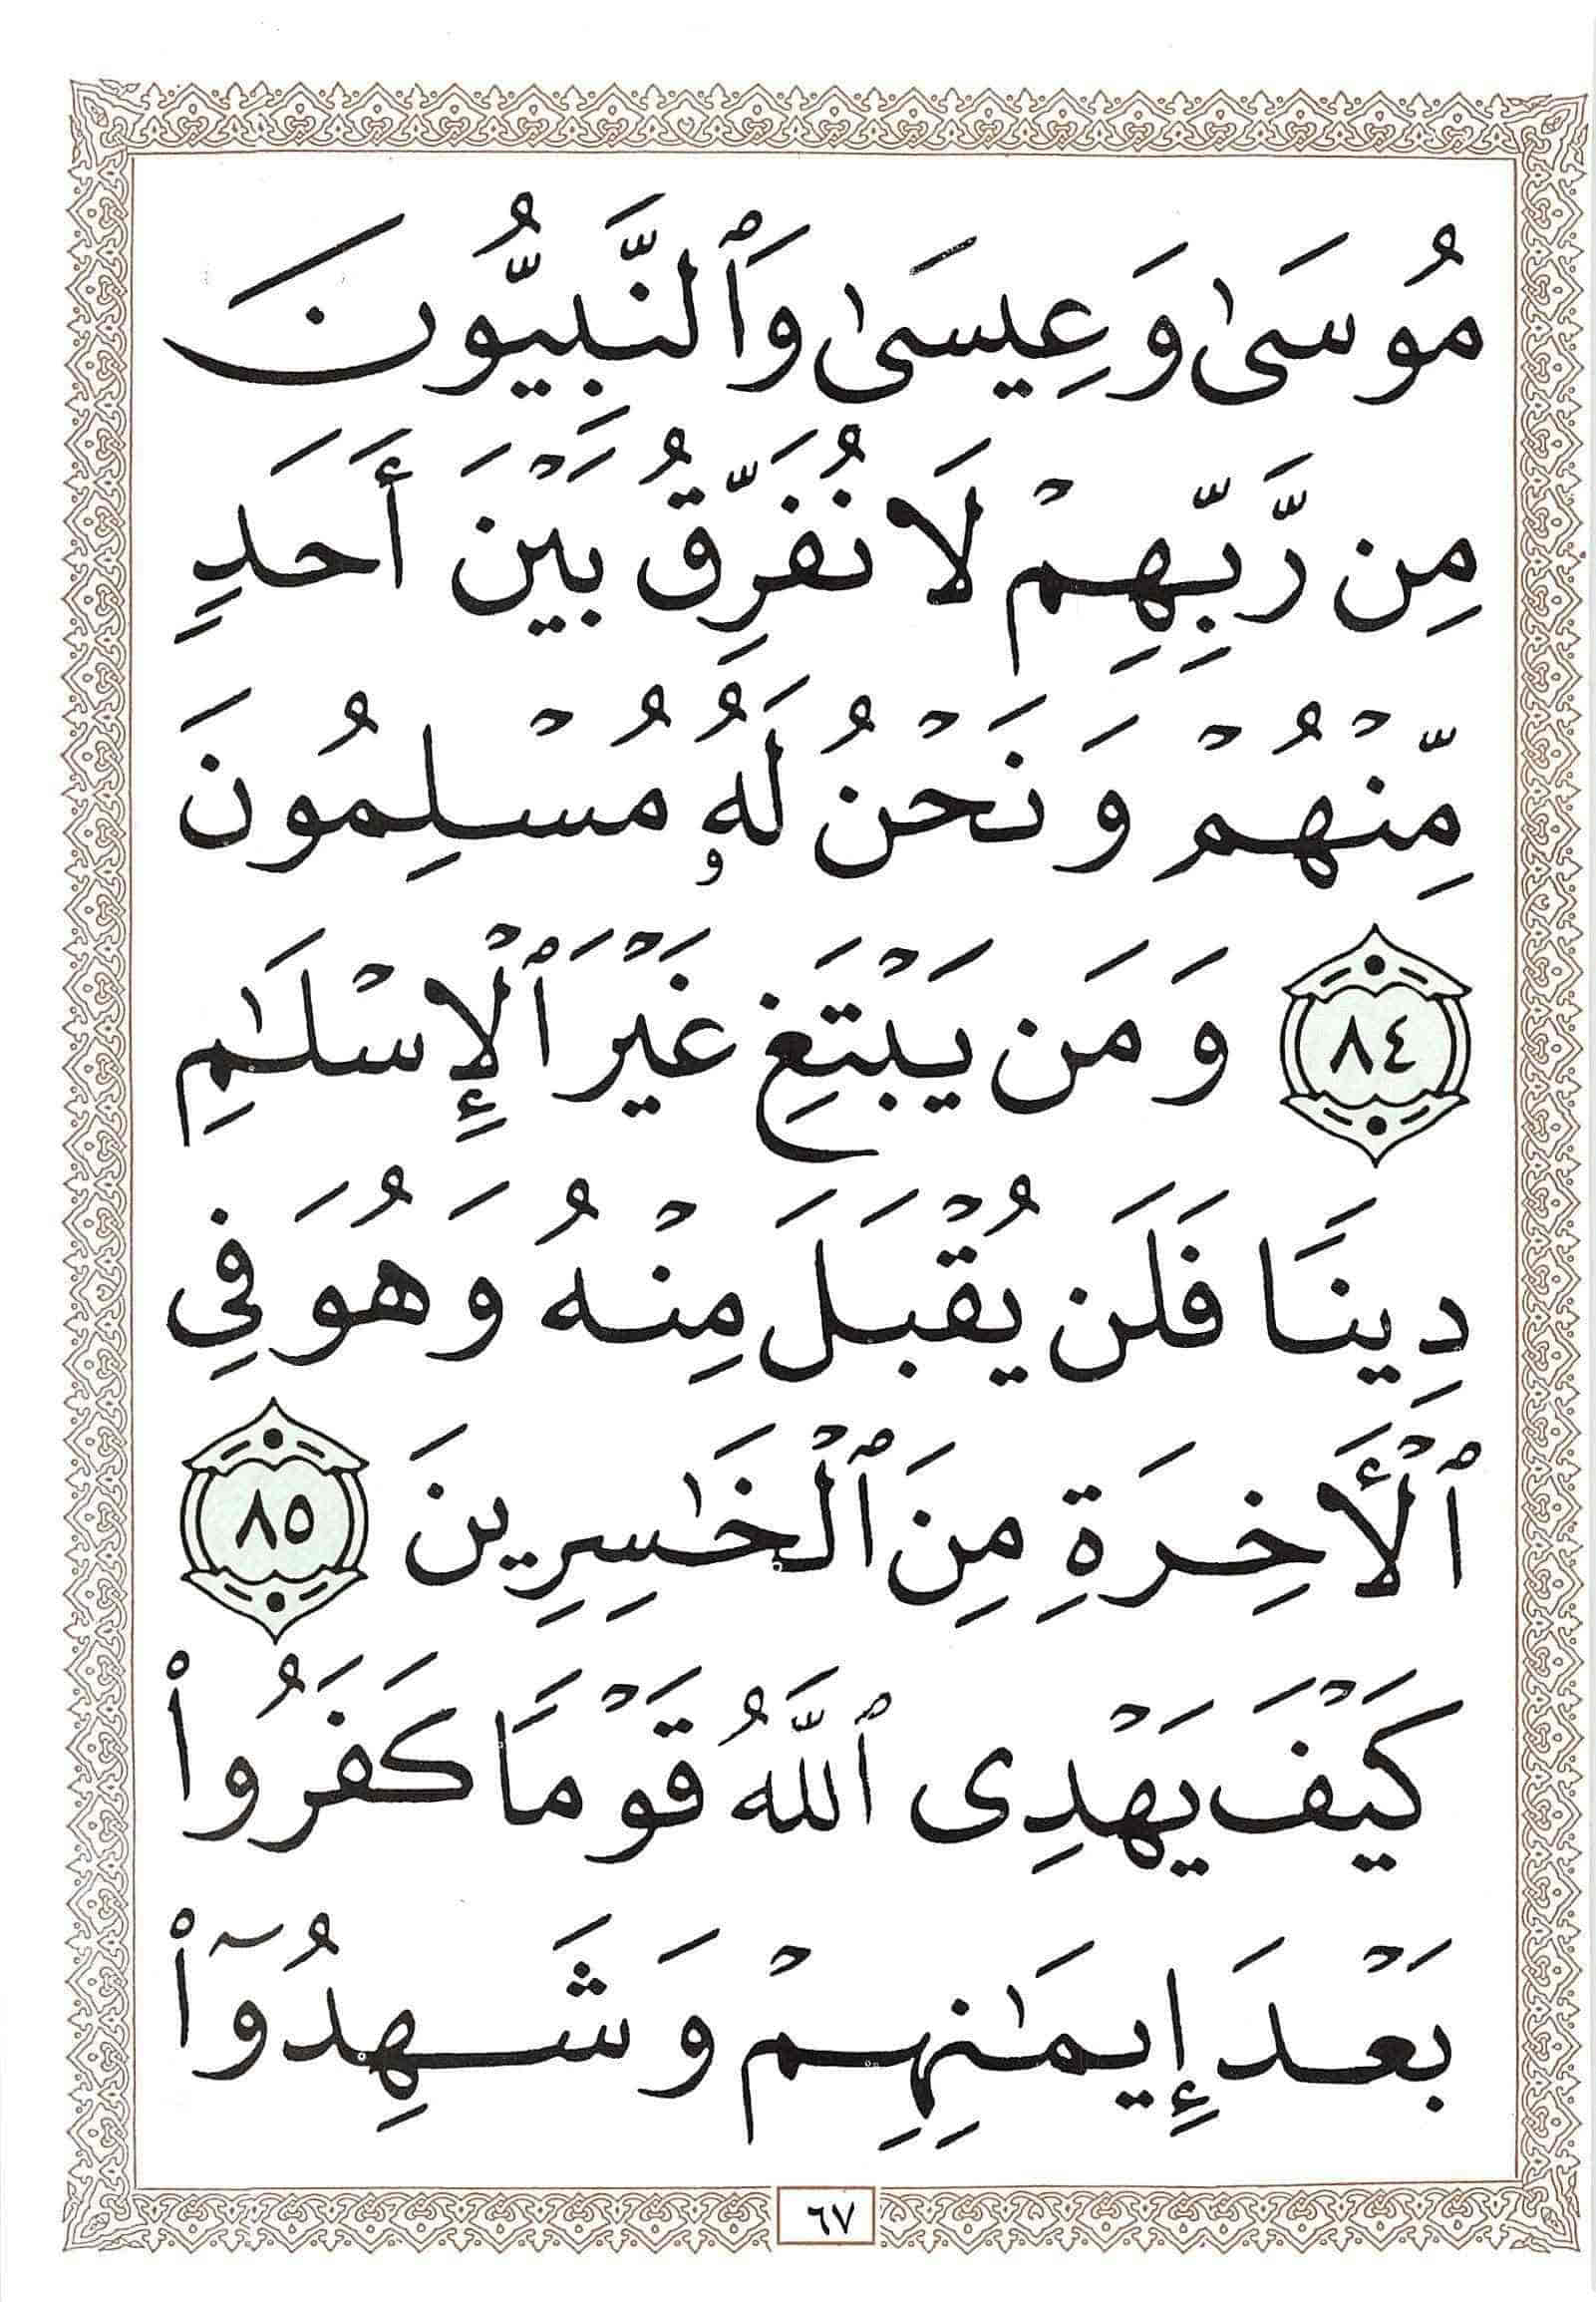 مُوسَىٰ وَعِيسَىٰ وَٱلنَّبِيُّونَ
مِن رَّبِّهِمْ لَا نُفَرِّقُ بَيْنَ أَحَدٍ
مِّنْهُمْ وَنَحْنُ لَهُۥ مُسْلِمُونَ
٨٤ وَمَن يَبْتَغِ غَيْرَ ٱلْإِسْلَٰمِ
دِينًا فَلَن يُقْبَلَ مِنْهُ وَهُوَ فِي
ٱلْأَخِرَةِ مِنَ ٱلْخَٰسِرِينَ ٨٥
كَيْفَ يَهْدِى ٱللَّهُ قَوْمًا كَفَرُوا۟
بَعْدَ إِيمَٰنِهِمْ وَشَهِدُوٓا۟
٦٧